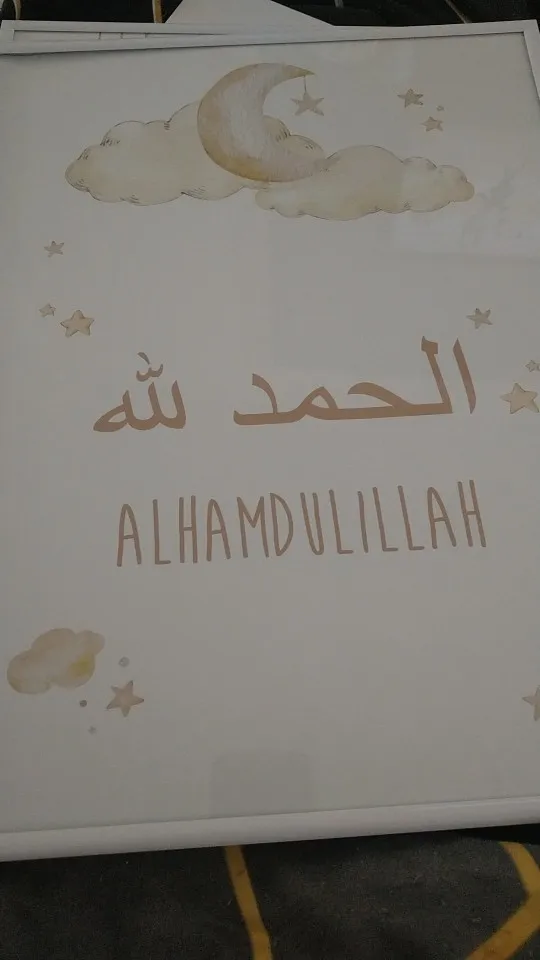 الحمد لله
ALHAMDULILLAH